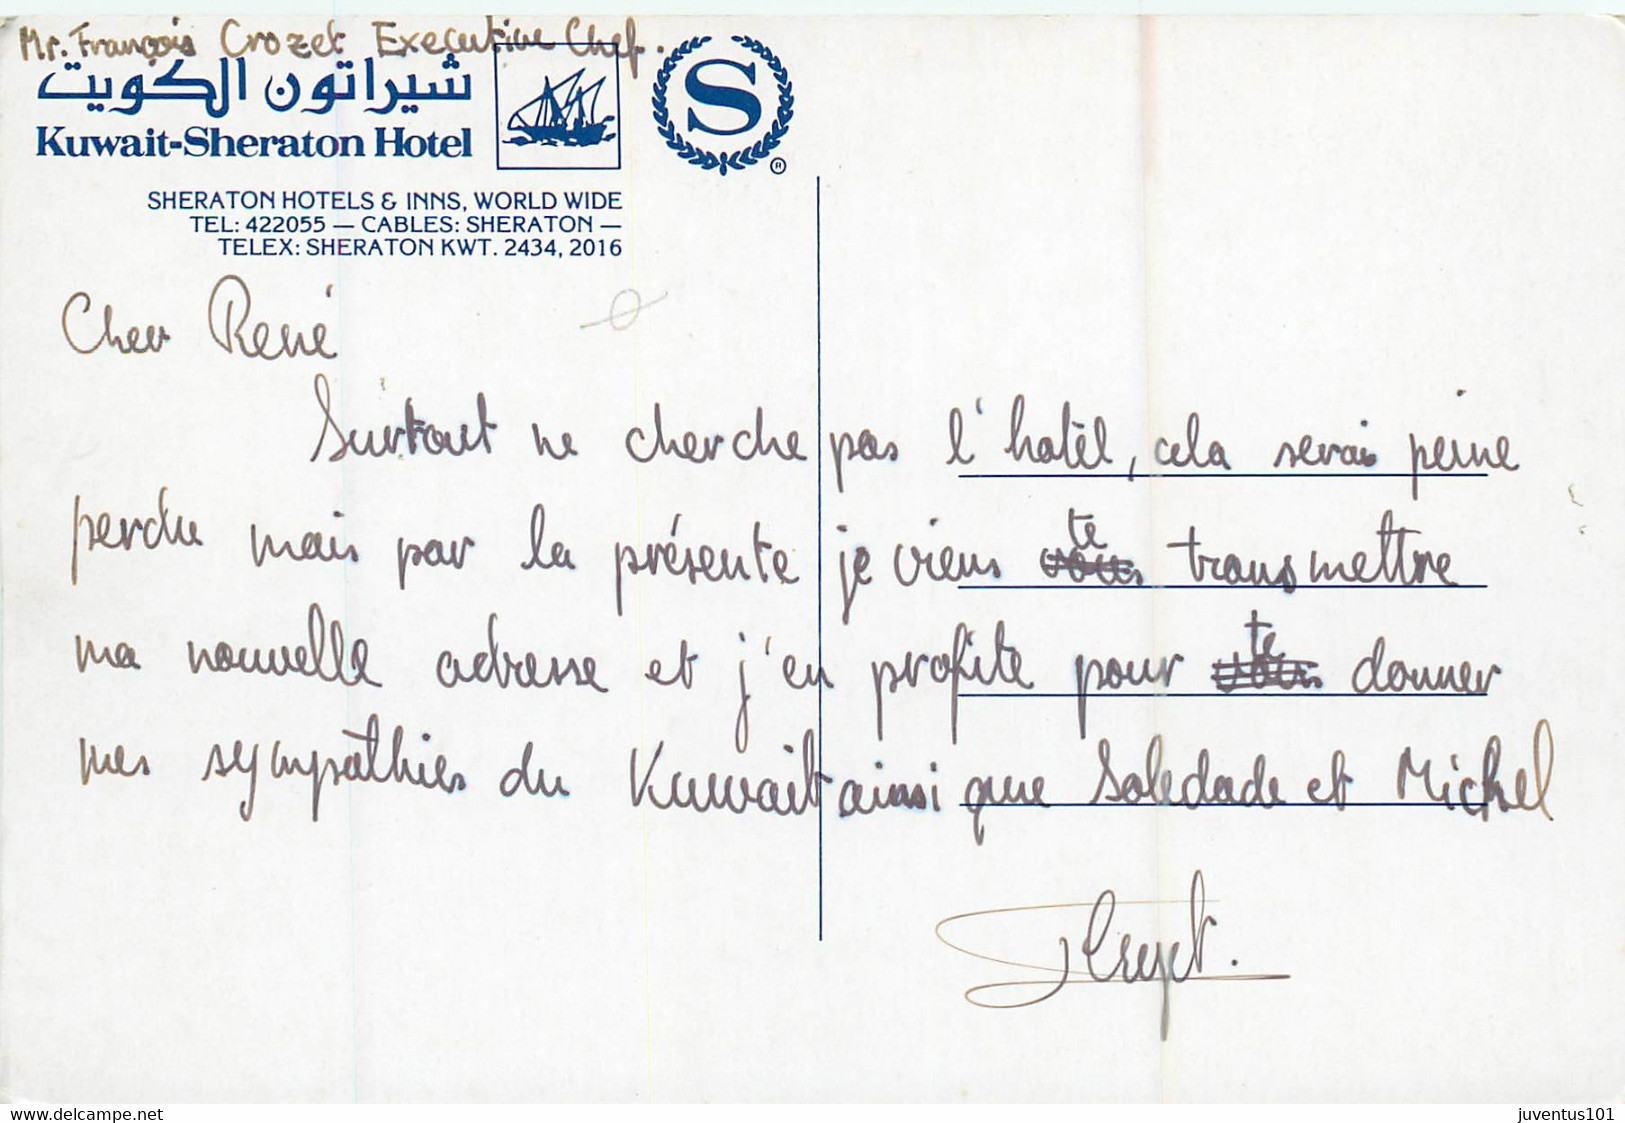 Mr. François Crozet Executive Chef.
شيراتون الكويت
Kuwait-Sheraton Hotel
S
®
SHERATON HOTELS & INNS, WORLD WIDE
TEL: 422055 — CABLES: SHERATON —
TELEX: SHERATON KWT. 2434, 2016
Cher René
Surtout ne cherche pas l'hotêl, cela serai peine
perdu mais par la présente je viens te transmettre
ma nouvelle adresse et j'en profite pour te donner
mes sympathies du Kuwait ainsi que Soledade et Michel
delcampe.net
juventus101